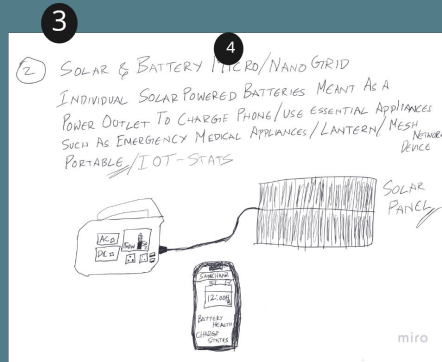 3
4
2 SOLAR & BATTERY MICRO/NANO GRID
INDIVIDUAL SOLAR POWERED BATTERIES MEANT AS A
POWER OUTLET TO CHARGE PHONE/USE ESSENTIAL APPLIANCES
SUCH AS EMERGENCY MEDICAL APPLIANCES/LANTERN/MESH NETWORK DEVICE
PORTABLE/IOT-STATS
SOLAR
PANEL
AC
DC
50W
12:00
BATTERY
HEALTH
CHARGE
STATES
miro